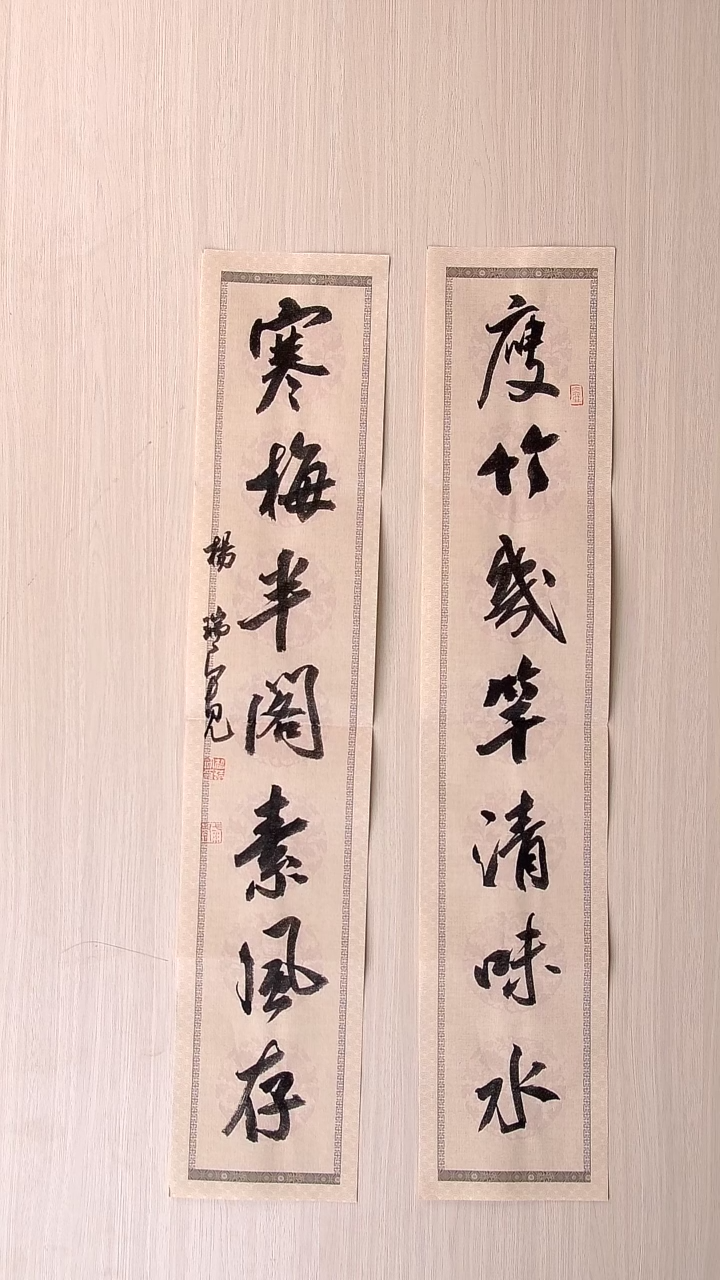 瘦竹幾竿清味水
寒梅半閣素風存
楊瑞